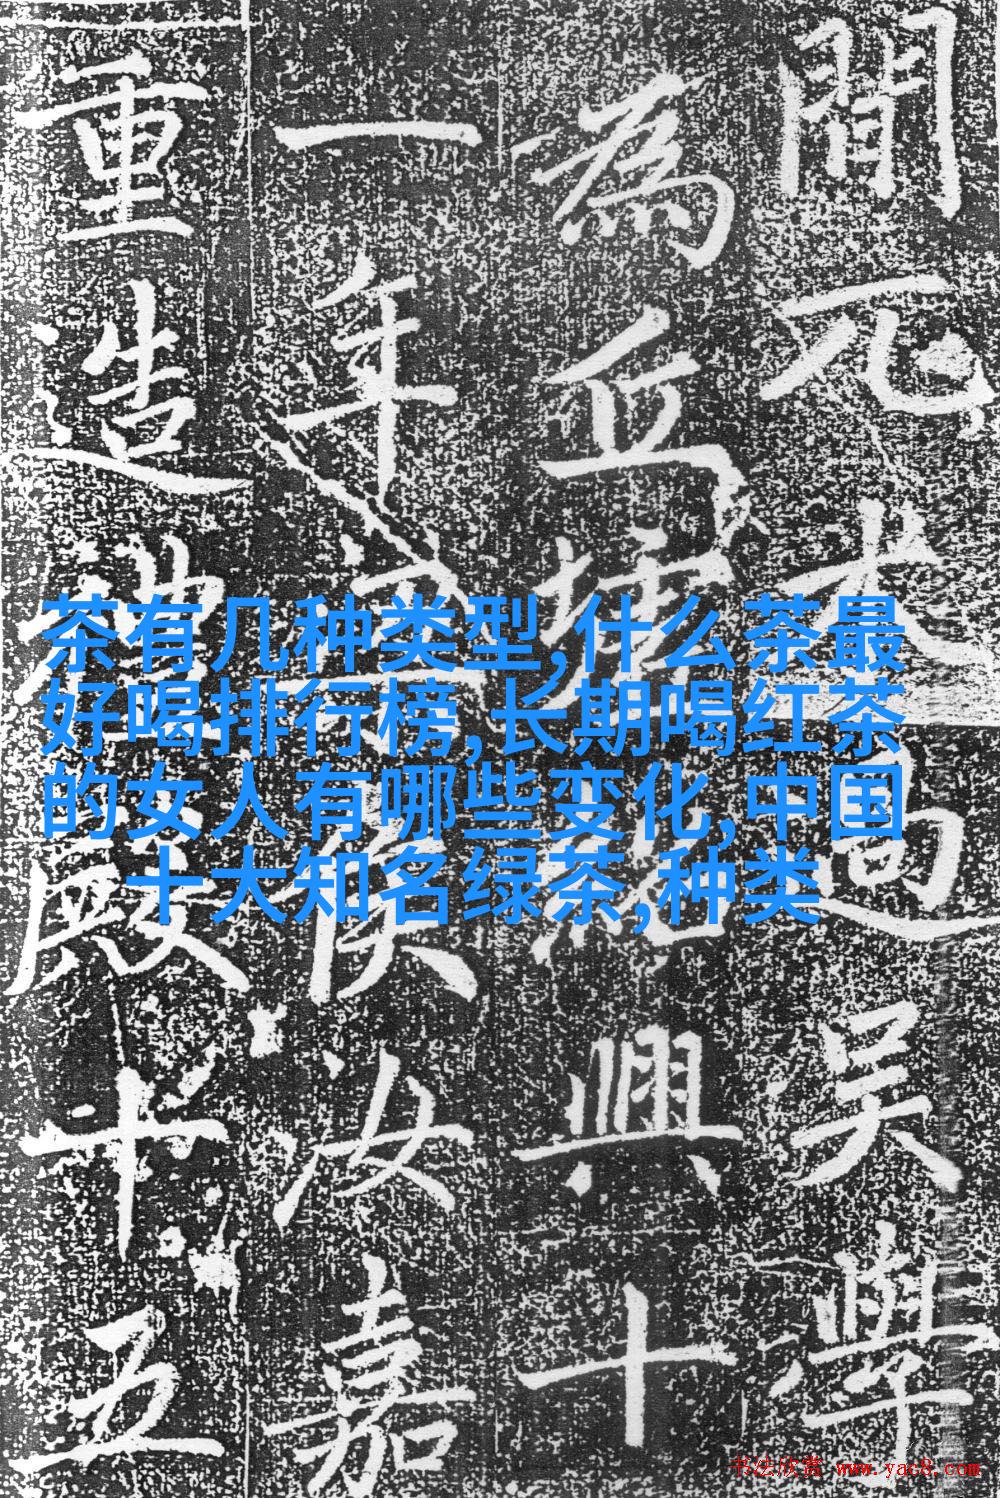 間元太過吳學
為丘墟紹興十
一年
重造禮殿十五
茶有几种类型,什么茶最
好喝排行榜,长期喝红茶
的女人有哪些变化,中国
十大知名绿茶,种类
书法欣赏 www.yac8.com